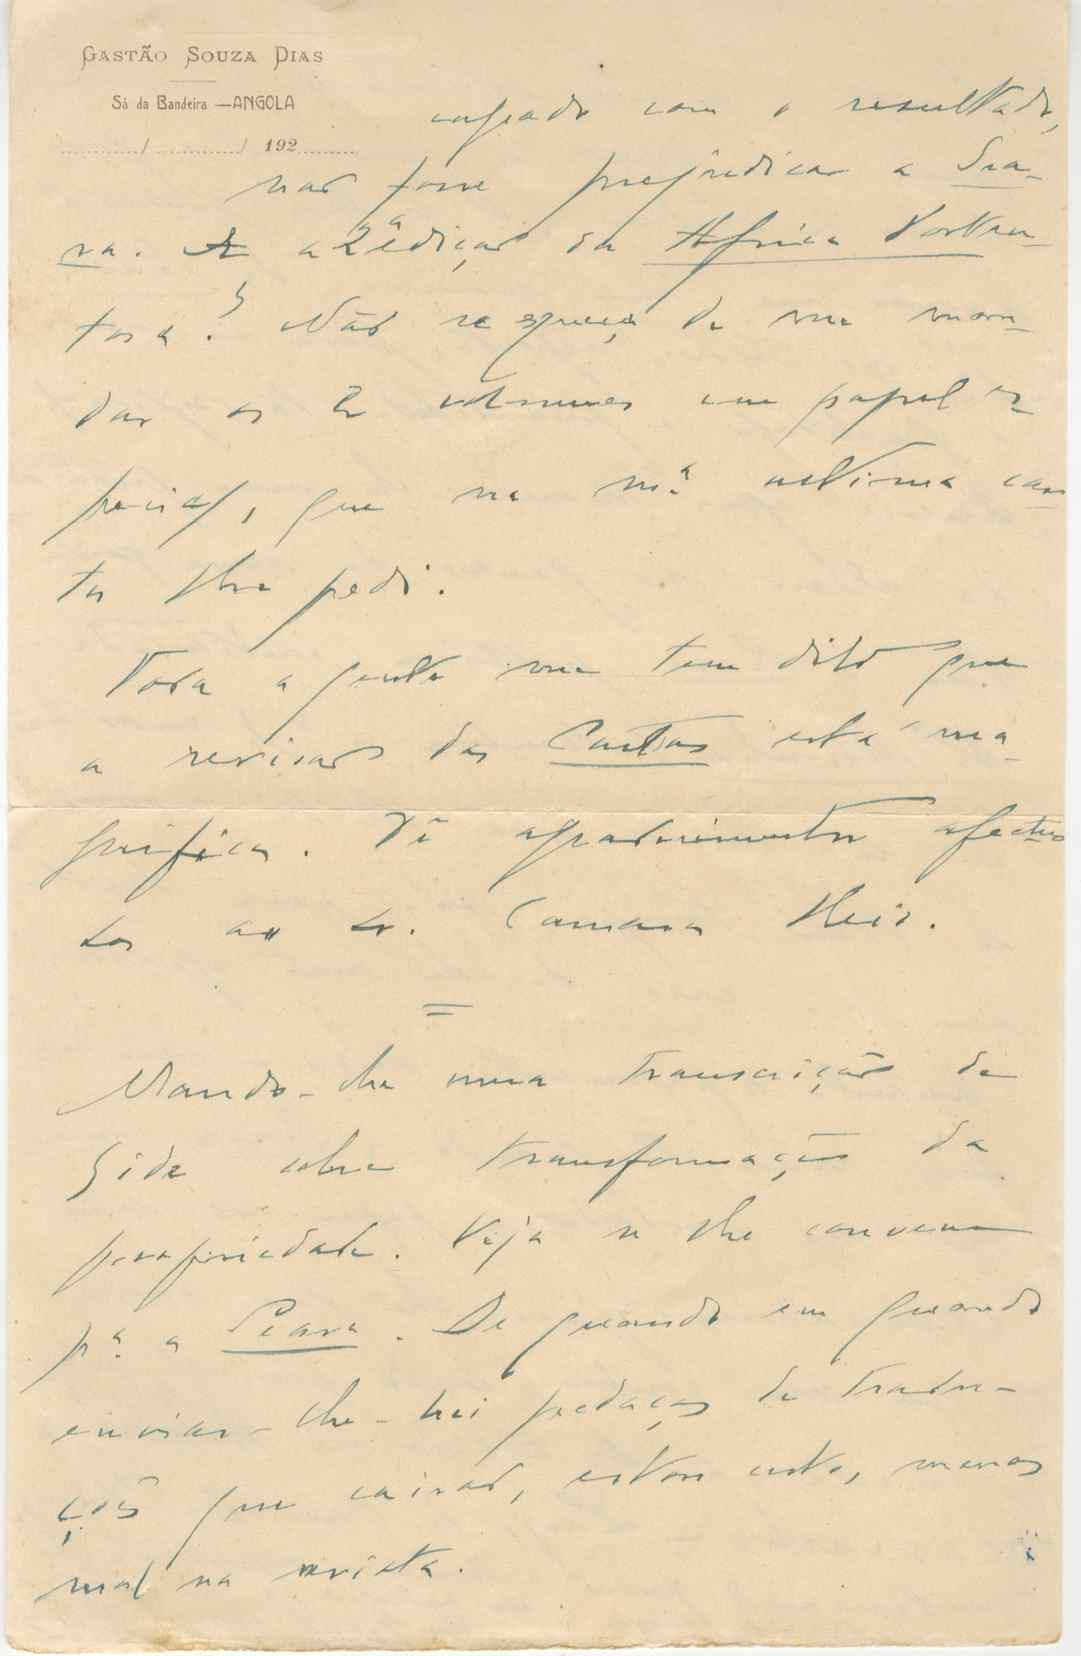 GASTÃO SOUZA DIAS
Sá da Bandeira — ANGOLA
........../........../ 192........
com o resultado,
não fosse prejudicar a Sea-
ra. A a 2ª edição da Africa Porten-
tosa? Não se esqueça de me man-
dar os 2 volumes em papel es-
pecial, que na mª ultima car-
ta lhe pedi.
Toda a gente me tem dito que
a revisão das Cartas está ma-
gnifica. Dê agradecimentos afectuo
sos ao Sr. Camara Reis.
=
Mando-lhe uma transcrição de
Gide sobre transformação da
propriedade. Veja se lhe convem
pª a Seara. De quando em quando
enviar-lhe-hei pedaços de tradu-
ções que cairão, estou certo, menos
mal na revista.